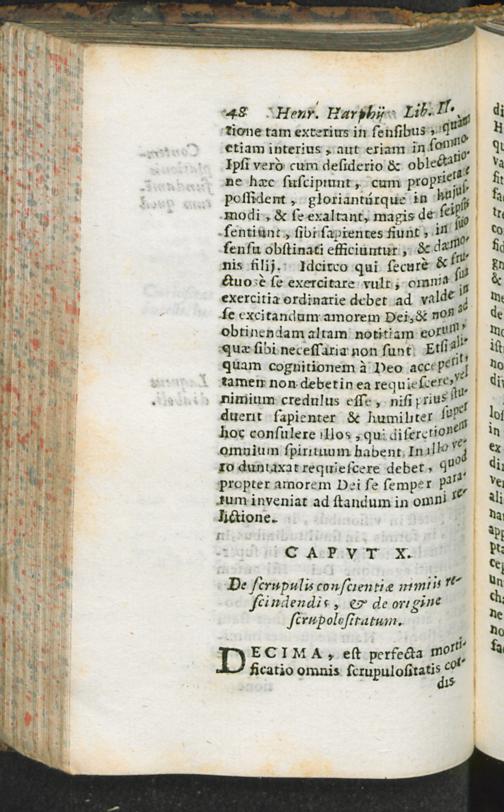 48 Henr. Harphij Lib. II.
tione tam exterius in sensibus, quàm
etiam interius, aut etiam in somno.
Ipsi verò cum desiderio & oblectatio-
ne hæc suscipiunt, cum proprietate
possident, gloriantúrque in hujus-
modi, & se exaltant, magis de seipsis
sentiunt, sibi sapientes fiunt, in suo
sensu obstinati efficiuntur, & dæmo-
nis filij. Idcirco qui securè & fru-
ctuosè se exercitare vult, omnia sua
exercitia ordinarie debet ad valde in
se excitandum amorem Dei, & non ad
obtinendam altam notitiam eorum,
quæ sibi necessaria non sunt. Etsi ali-
quam cognitionem à Deo acceperit,
tamen non debet in ea requiescere, vel
nimium credulus esse, nisi prius stu-
duerit sapienter & humiliter super
hoc consulere illos, qui discretionem
omnium spirituum habent. In illo ve-
ro duntaxat requiescere debet, quod
propter amorem Dei se semper para-
tum inveniat ad standum in omni re-
lictione.
CAPVT X.
De scrupulis conscientiæ nimiis re-
scindendis, & de origine
scrupolositatum.
DECIMA, est perfecta morti-
ficatio omnis scrupulositatis cor-
dis